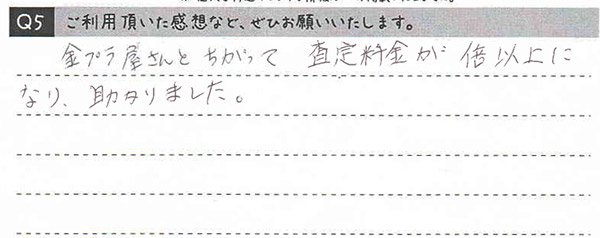 Q5 ご利用頂いた感想など、ぜひお願いいたします。
金プラ屋さんとちがって 査定料金が倍以上に
なり、助かりました。